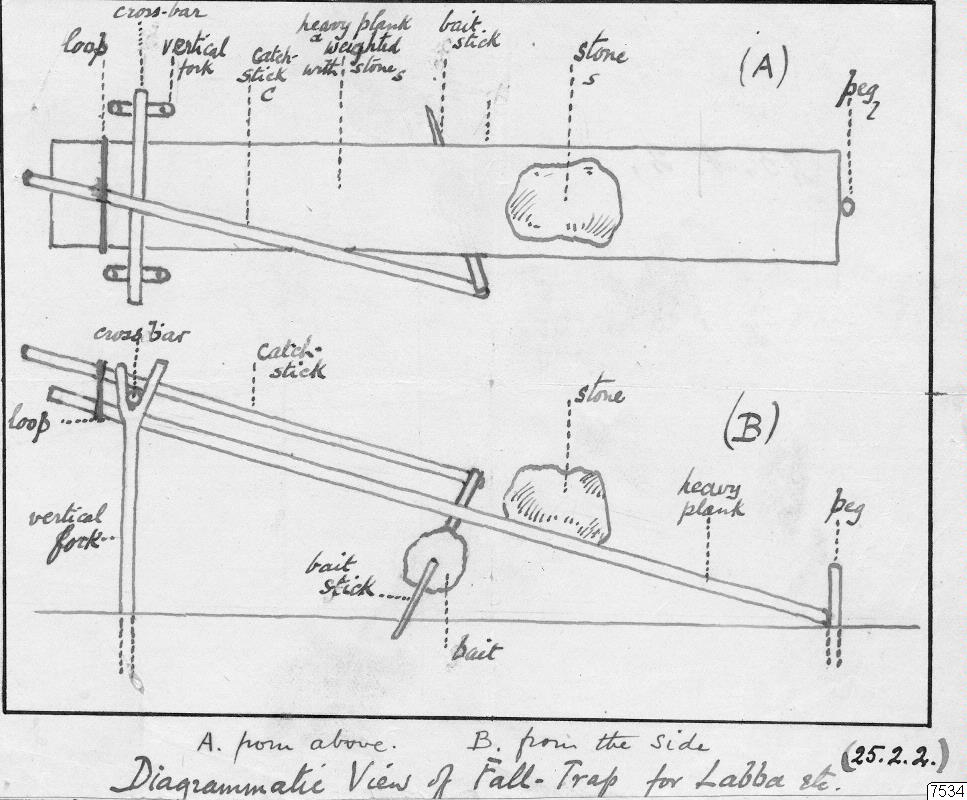 cross-bar
loop
vertical
fork
catch-
stick
C
heavy plank
weighted
with stones
bait
stick
stone
s
(A)
peg
cross bar
catch-
stick
loop
stone
(B)
vertical
fork
bait
stick
heavy
plank
peg
bait
A. from above. B. from the side
(25.2.2.)
Diagrammatic View of Fall-Trap for Labba etc.
7534